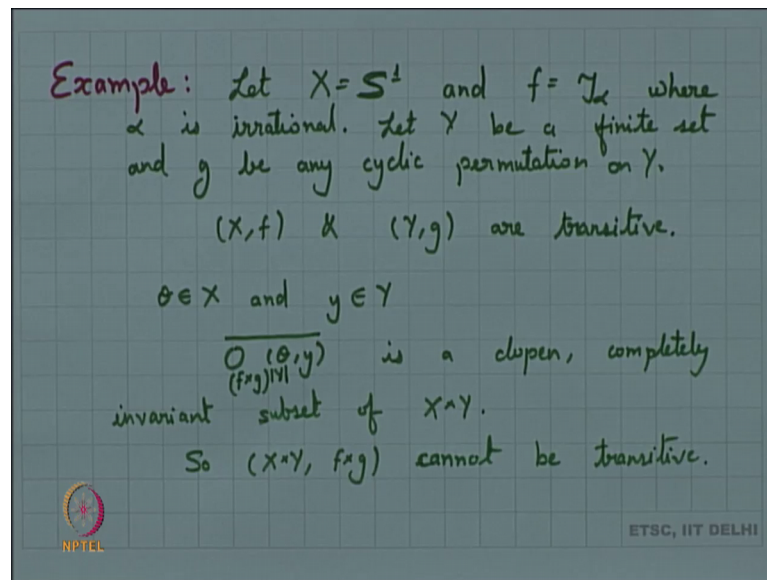 Example: Let X = S¹ and f = T_α where
α is irrational. Let Y be a finite set
and g be any cyclic permutation on Y.
(X, f) & (Y, g) are transitive.
θ ∈ X and y ∈ Y
\overline{O_{(f×g)^{|Y|}}(θ, y)} is a clopen, completely
invariant subset of X×Y.
So (X×Y, f×g) cannot be transitive.
NPTEL
ETSC, IIT DELHI